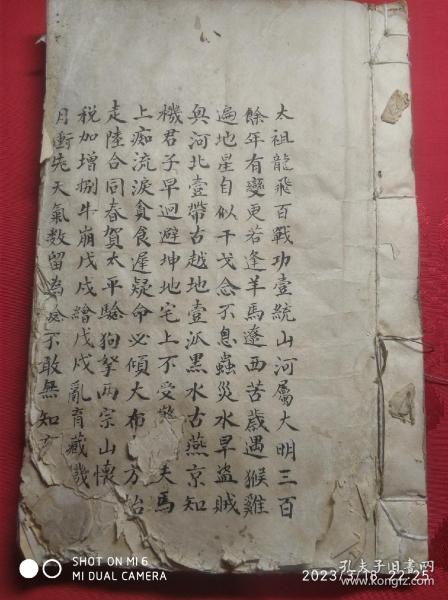 太祖龍飛百戰功壹統山河屬大明三百
餘年有變更若逢羊馬遼西苦歲遇猴雞
遍地星自似干戈念不息蟲災水旱盜賊
與河北壹帶古越地壹派黒水古燕京知
機君子早迴避坤地宅上不受 夫馬
上痴流淚貪食遲疑命必傾大布 方始
走陸合同春賀太平騐狗拏两宗山懷
税加增捌牛崩戊戍繪戊戍亂育藏幾
月衝先天氣数留為 不敢無知
SHOT ON MI 6
MI DUAL CAMERA
2023/3/18 22:25
孔夫子旧書网